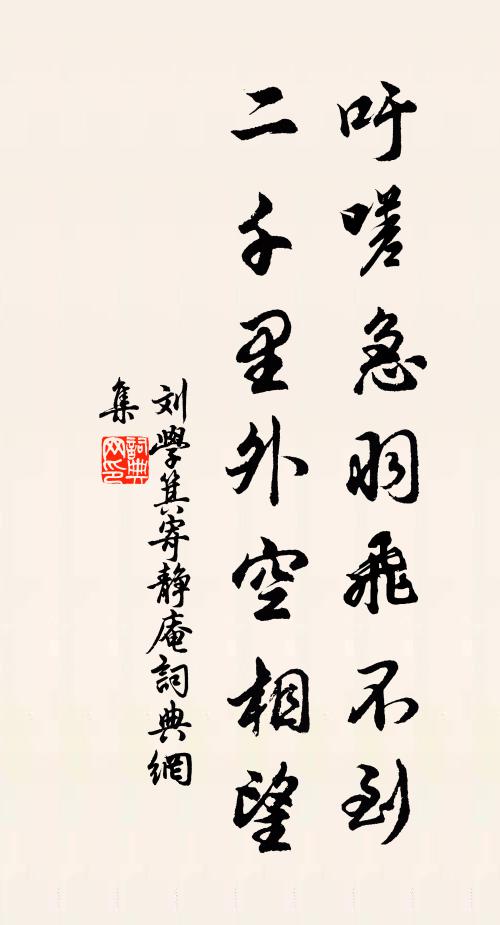 吁嗟急羽飛不到
二千里外空相望
刘學箕寄靜庵詞典網
集
詞典網印